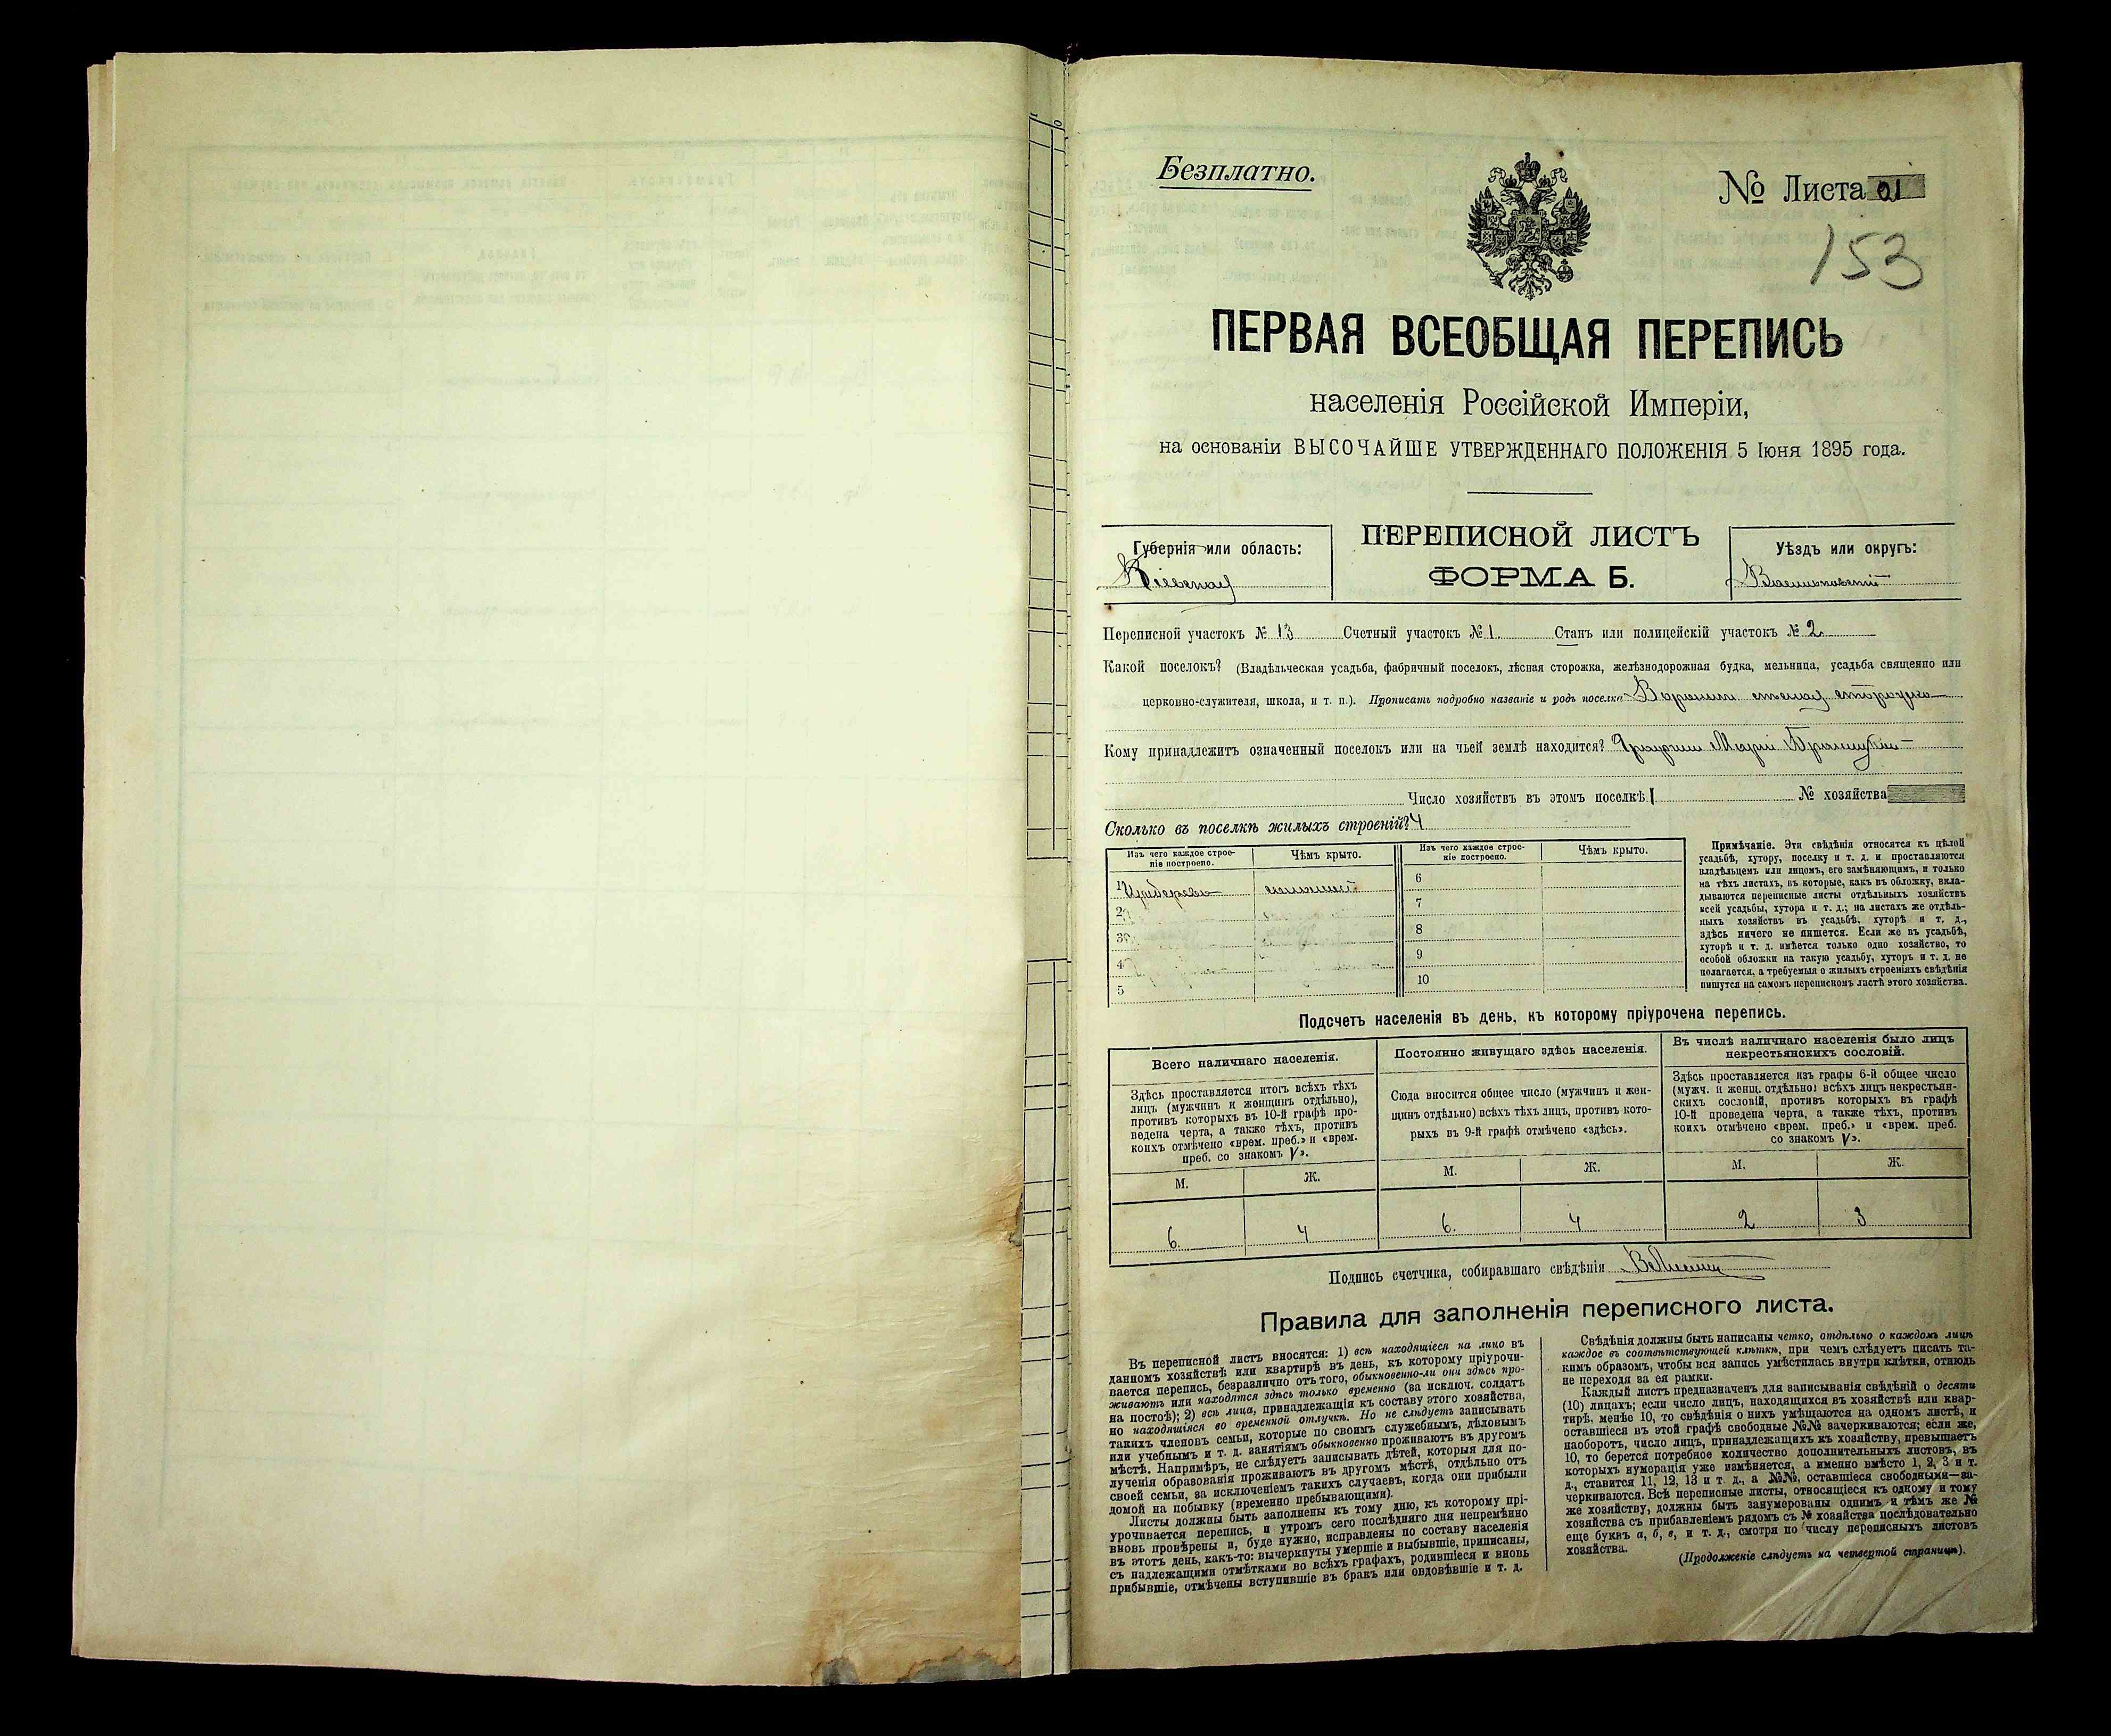 Безплатно.
№ Листа
153
ПЕРВАЯ ВСЕОБЩАЯ ПЕРЕПИСЬ
населенія Россійской Имперіи,
на основаніи ВЫСОЧАЙШЕ УТВЕРЖДЕННАГО ПОЛОЖЕНІЯ 5 Іюня 1895 года.
Губернія или область:
Кіевская
ПЕРЕПИСНОЙ ЛИСТЪ
ФОРМА Б.
Уѣздъ или округъ:
Васильковскій
Переписной участокъ № 13 Счетный участокъ № 1 Станъ или полицейскій участокъ № 2
Какой поселокъ? (Владѣльческая усадьба, фабричный поселокъ, лѣсная сторожка, желѣзнодорожная будка, мельница, усадьба священно или
церковно-служителя, школа, и т. п.). Прописать подробно названіе и родъ поселка
Кому принадлежитъ означенный поселокъ или на чьей землѣ находится? Графини Маріи Браницкой
Число хозяйствъ въ этомъ поселкѣ 1 № хозяйства
Сколько въ поселкѣ жилыхъ строеній? 4
Изъ чего каждое строе-
ніе построено.
Чѣмъ крыто.
Изъ чего каждое строе-
ніе построено.
Чѣмъ крыто.
1
2
3
4
5
6
7
8
9
10
Примѣчаніе. Эти свѣдѣнія относятся къ цѣлой
усадьбѣ, хутору, поселку и т. д. и проставляются
владѣльцемъ или лицомъ, его замѣняющимъ, и только
на тѣхъ листахъ, въ которые, какъ въ обложку, вкла-
дываются переписные листы отдѣльныхъ хозяйствъ
всей усадьбы, хутора и т. д.; на листахъ же отдѣль-
ныхъ хозяйствъ въ усадьбѣ, хуторѣ и т. д.,
здѣсь ничего не пишется. Если же въ усадьбѣ,
хуторѣ и т. д. имѣется только одно хозяйство, то
особой обложки на такую усадьбу, хуторъ и т. д. не
полагается, а требуемыя о жилыхъ строеніяхъ свѣдѣнія
пишутся на самомъ переписномъ листѣ этого хозяйства.
Подсчетъ населенія въ день, къ которому пріурочена перепись.
Всего наличнаго населенія.
Здѣсь проставляется итогъ всѣхъ тѣхъ
лицъ (мужчинъ и женщинъ отдѣльно),
противъ которыхъ въ 10-й графѣ про-
ведена черта, а также тѣхъ, противъ
коихъ отмѣчено «врем. преб.» и «врем.
преб. со знакомъ V».
М. Ж.
6 4
Постоянно живущаго здѣсь населенія.
Сюда вносится общее число (мужчинъ и жен-
щинъ отдѣльно) всѣхъ тѣхъ лицъ, противъ кото-
рыхъ въ 9-й графѣ отмѣчено «здѣсь».
М. Ж.
6 4
Въ числѣ наличнаго населенія было лицъ
некрестьянскихъ сословій.
Здѣсь проставляется изъ графы 6-й общее число
(мужч. и женщ. отдѣльно) всѣхъ лицъ некрестьян-
скихъ сословій, противъ которыхъ въ графѣ
10-й проведена черта, а также тѣхъ, противъ
коихъ отмѣчено «врем. преб.» и «врем. преб.
со знакомъ V».
М. Ж.
2 3
Подпись счетчика, собиравшаго свѣдѣнія
Правила для заполненія переписного листа.
Въ переписной листъ вносятся: 1) всѣ находящіеся на лицо въ
данномъ хозяйствѣ или квартирѣ въ день, къ которому пріурочи-
вается перепись, безразлично отъ того, обыкновенно-ли они здѣсь про-
живаютъ или находятся здѣсь только временно (за исключ. солдатъ
на постоѣ); 2) всѣ лица, принадлежащія къ составу этого хозяйства,
но находящіяся во временной отлучкѣ. Но не слѣдуетъ записывать
такихъ членовъ семьи, которые по своимъ служебнымъ, дѣловымъ
или учебнымъ и т. д. занятіямъ обыкновенно проживаютъ въ другомъ
мѣстѣ. Напримѣръ, не слѣдуетъ записывать дѣтей, которыя для по-
лученія образованія проживаютъ въ другомъ мѣстѣ, отдѣльно отъ
своей семьи, за исключеніемъ такихъ случаевъ, когда они прибыли
домой на побывку (временно пребывающими).
Листы должны быть заполнены къ тому дню, къ которому прі-
урочивается перепись, и утромъ сего послѣдняго дня непремѣнно
вновь провѣрены и, буде нужно, исправлены по составу населенія
въ этотъ день, какъ-то: вычеркнуты умершіе и выбывшіе, приписаны,
съ надлежащими отмѣтками во всѣхъ графахъ, родившіеся и вновь
прибывшіе, отмѣчены вступившіе въ бракъ или овдовѣвшіе и т. д.
Свѣдѣнія должны быть написаны четко, отдѣльно о каждомъ лицѣ
каждое въ соотвѣтствующей клѣткѣ, при чемъ слѣдуетъ писать та-
кимъ образомъ, чтобы вся запись умѣстилась внутри клѣтки, отнюдь
не переходя за ея рамки.
Каждый листъ предназначенъ для записыванія свѣдѣній о десяти
(10) лицахъ; если число лицъ, находящихся въ хозяйствѣ или квар-
тирѣ, менѣе 10, то свѣдѣнія о нихъ умѣщаются на одномъ листѣ, и
оставшіеся въ этой графѣ свободные №№ зачеркиваются; если же,
наоборотъ, число лицъ, принадлежащихъ къ хозяйству, превышаетъ
10, то берется потребное количество дополнительныхъ листовъ, въ
которыхъ нумерація уже измѣняется, а именно вмѣсто 1, 2, 3 и т.
д., ставится 11, 12, 13 и т. д., а №№, оставшіеся свободными—за-
черкиваются. Всѣ переписные листы, относящіеся къ одному и тому
же хозяйству, должны быть занумерованы однимъ и тѣмъ же №
хозяйства съ прибавленіемъ рядомъ съ № хозяйства послѣдовательно
еще буквъ а, б, в, и т. д., смотря по числу переписныхъ листовъ
хозяйства.
(Продолженіе слѣдуетъ на четвертой страницѣ).